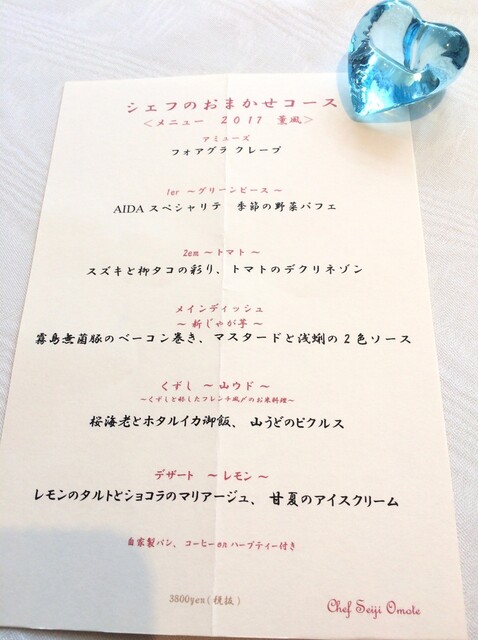 シェフのおまかせコース
＜メニュー 2017 薫風＞
アミューズ
フォアグラ クレープ
1er ～グリーンピース～
AIDA スペシャリテ 季節の野菜パフェ
2em ～トマト～
スズキと柳タコの彩り、トマトのデクリネゾン
メインディッシュ
～新じゃが芋～
霧島無菌豚のベーコン巻き、マスタードと浅蜊の２色ソース
くずし ～山ウド～
～くずしと称したフレンチ風〆のお米料理～
桜海老とホタルイカ御飯、山うどのピクルス
デザート ～レモン～
レモンのタルトとショコラのマリアージュ、甘夏のアイスクリーム
自家製パン、コーヒーonハーブティー付き
3800yen(税抜)
Chef Seiji Omote